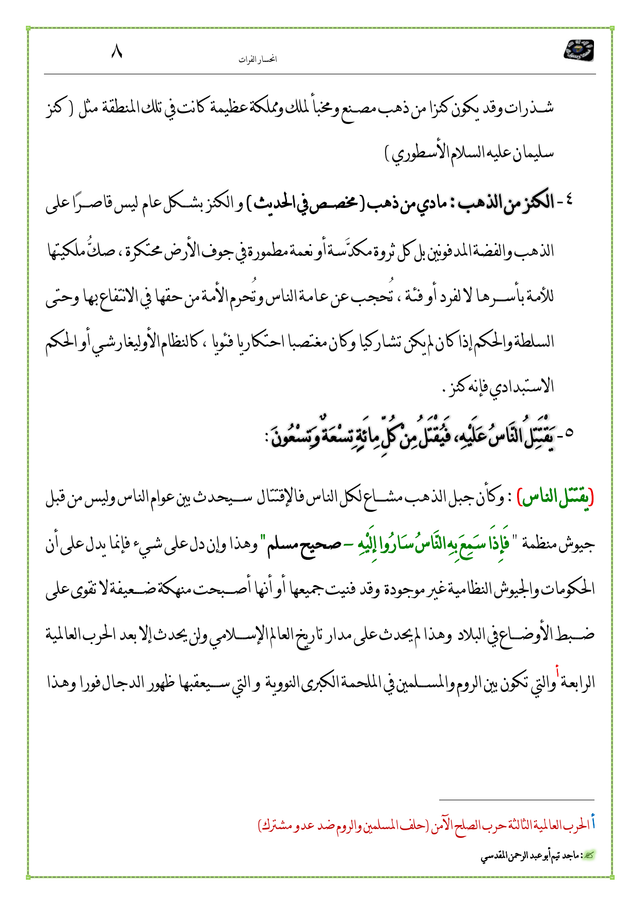 انحسار الفرات
٨
شذرات وقد يكون كنزا من ذهب مصنع ومخبأ لملك ومملكة عظيمة كانت في تلك المنطقة مثل ( كنز
سليمان عليه السلام الأسطوري )
٤- الكنز من الذهب : مادي من ذهب ( مخصص في الحديث ) و الكنز بشكل عام ليس قاصرًا على
الذهب والفضة المدفونين بل كل ثروة مكدَّسة أو نعمة مطمورة في جوف الأرض محتكرة ، صكُّ ملكيتها
للأمة بأسرها لا لفرد أو فئة ، تُحجب عن عامة الناس وتُحرم الأمة من حقها في الانتفاع بها وحتى
السلطة والحكم إذا كان لم يكن تشاركيا وكان مغتصبا احتكاريا فئويا ، كالنظام الأوليغارشي أو الحكم
الاستبدادي فإنه كنز .
٥- يَقْتَتِلُ النَّاسُ عَلَيْهِ، فَيُقْتَلُ مِنْ كُلِّ مِائَةٍ تِسْعَةٌ وَتِسْعُونَ :
(يقتتل الناس) : وكأن جبل الذهب مشاع لكل الناس فالإقتتال سيحدث بين عوام الناس وليس من قبل
جيوش منظمة " فَإِذَا سَمِعَ بِهِ النَّاسُ سَارُوا إِلَيْهِ – صحيح مسلم" وهذا وإن دل على شيء فإنما يدل على أن
الحكومات والجيوش النظامية غير موجودة وقد فنيت جميعها أو أنها أصبحت منهكة ضعيفة لا تقوى على
ضبط الأوضاع في البلاد وهذا لم يحدث على مدار تاريخ العالم الإسلامي ولن يحدث إلا بعد الحرب العالمية
الرابعة أ والتي تكون بين الروم والمسلمين في الملحمة الكبرى النووية و التي سيعقبها ظهور الدجال فورا وهذا
أ الحرب العالمية الثالثة حرب الصلح الآمن (حلف المسلمين والروم ضد عدو مشترك)
: ماجد تيم أبو عبد الرحمن المقدسي